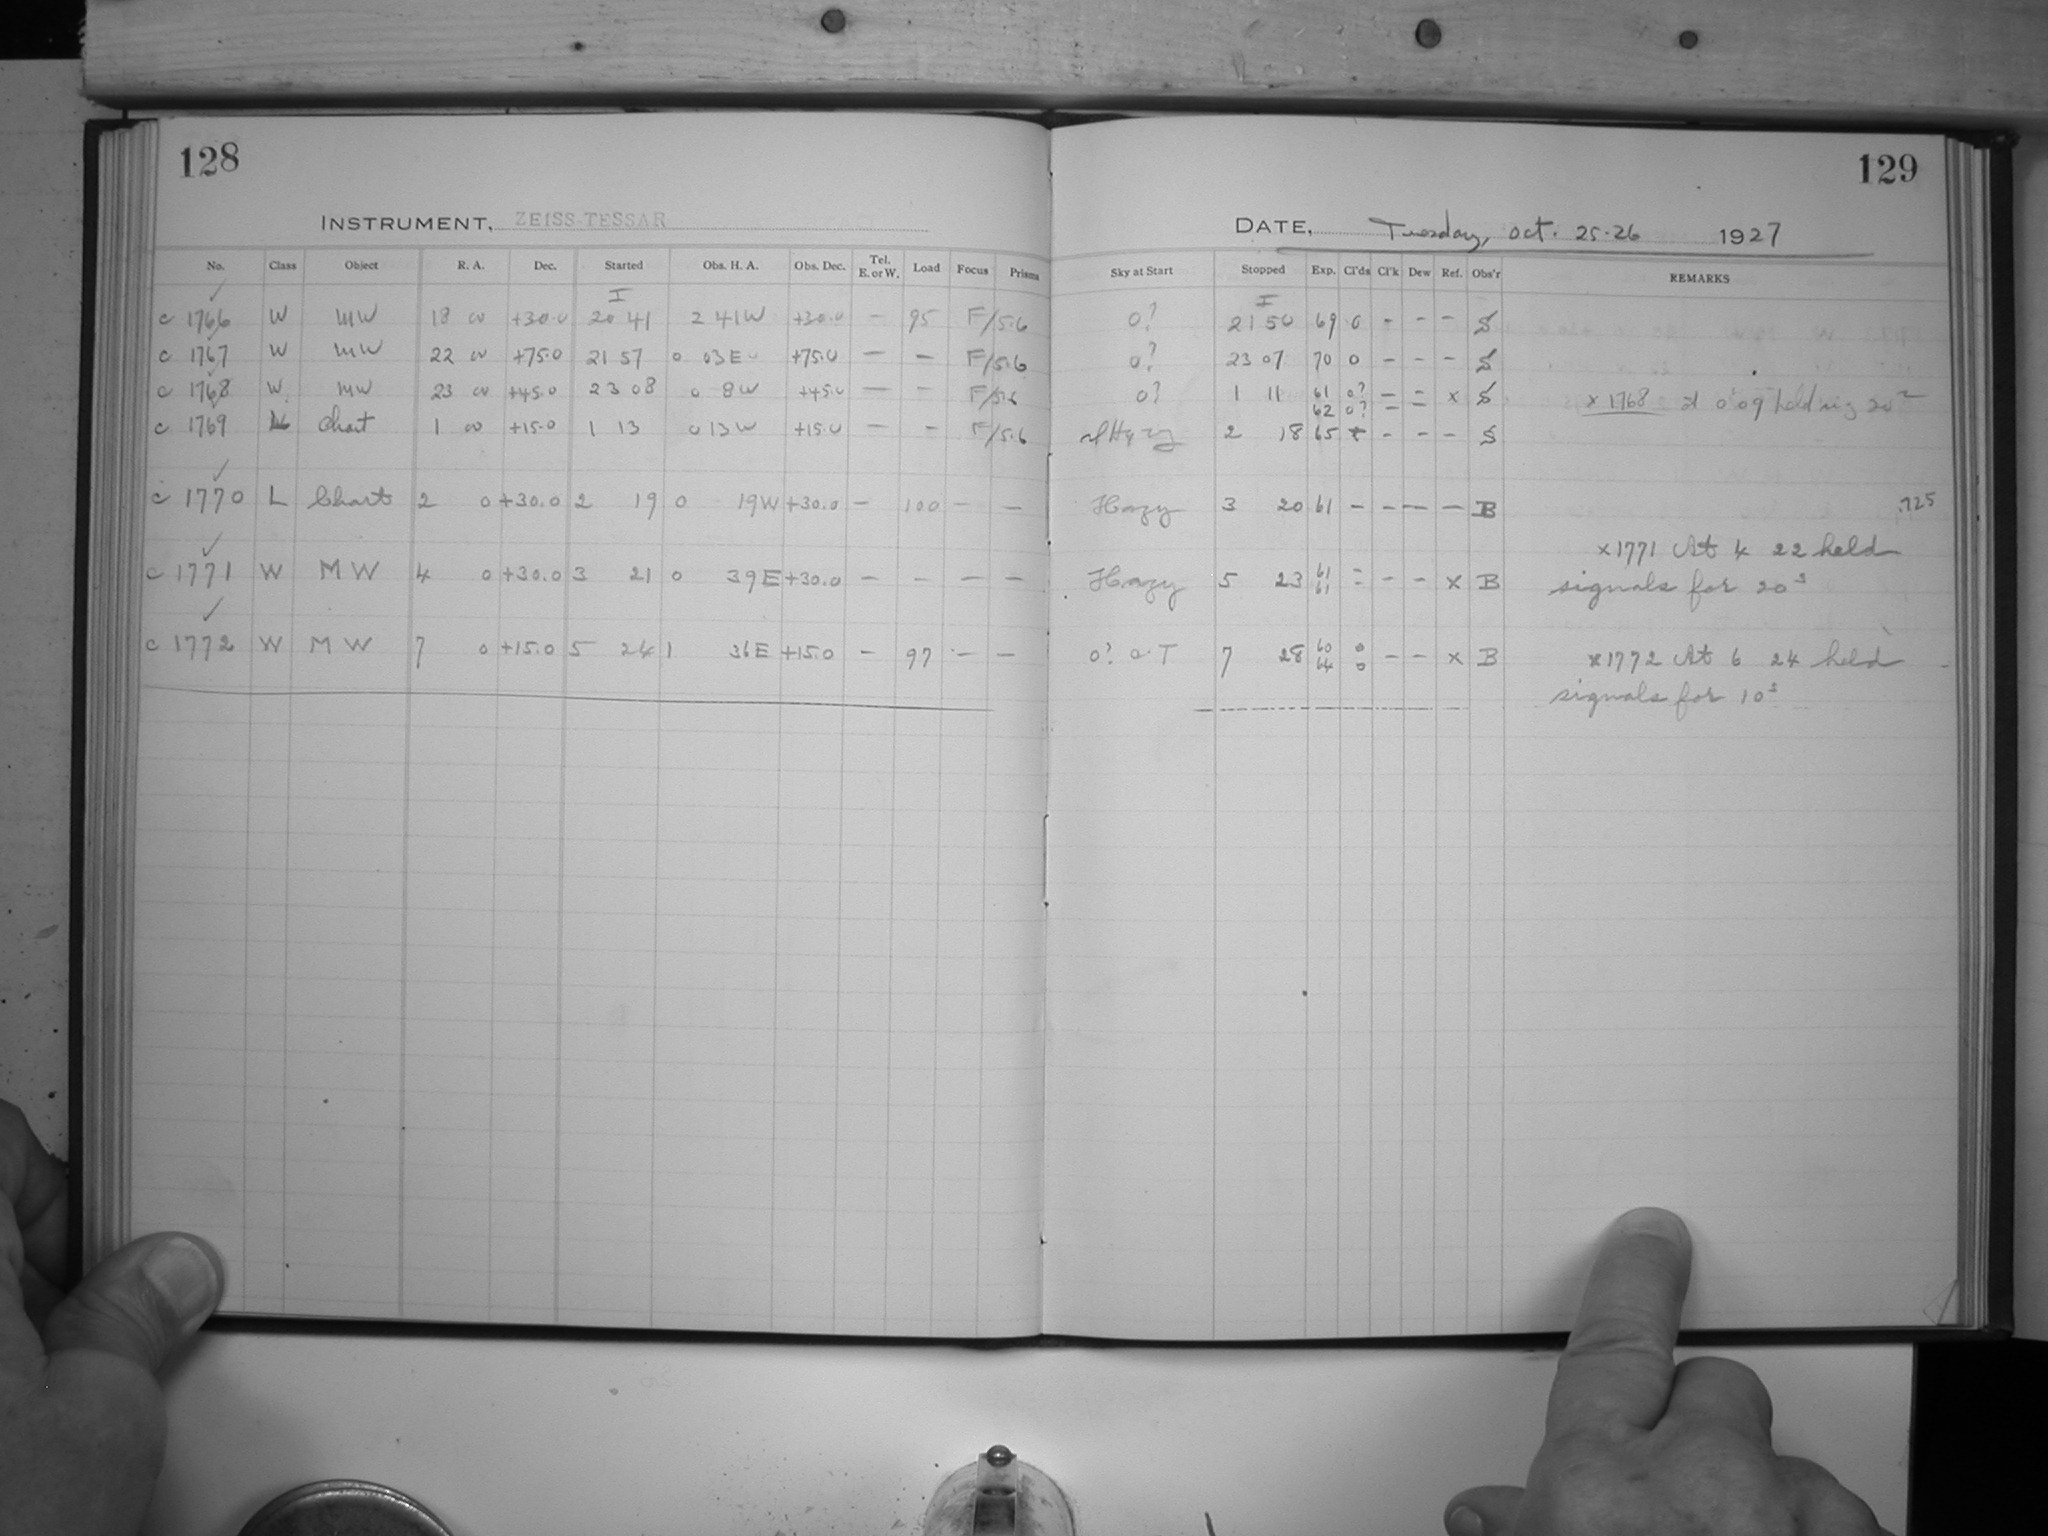 128
129
INSTRUMENT, ZEISS-TESSAR
DATE, Tuesday, Oct. 25-26 1927
No. Class Object R. A. Dec. Started Obs. H. A. Obs. Dec. Tel. E. or W. Load Focus Prisms Sky at Start Stopped Exp. Cl'ds Cl'k Dew Ref. Obs'r REMARKS
I I
c 1766 W MW 18 00 +30.0 20 41 2 41W +30.0 - 95 F/5.6 0? 21 50 69 0 - - - S
c 1767 W MW 22 00 +75.0 21 57 0 03E +75.0 - - F/5.6 0? 23 07 70 0 - - - S
c 1768 W MW 23 00 +45.0 23 08 0 8W +45.0 - - F/5.6 0? 1 11 61 0? - - x S x 1768 at 0 09 held sig 20
62 0? - -
c 1769 Chart 1 00 +15.0 1 13 0 13W +15.0 - - F/5.6 2 18 65 - - - S
c 1770 L Chart 2 0 +30.0 2 19 0 19W +30.0 - 100 - - Hazy 3 20 61 - - - - B .725
c 1771 W MW 4 0 +30.0 3 21 0 39E +30.0 - - - - Hazy 5 23 61 - - - x B x1771 At 4 22 held
61 - signals for 20s
c 1772 W MW 7 0 +15.0 5 24 1 36E +15.0 - 97 - - 0? a T 7 28 60 0 - - x B x1772 At 6 24 held
64 0 signals for 10s